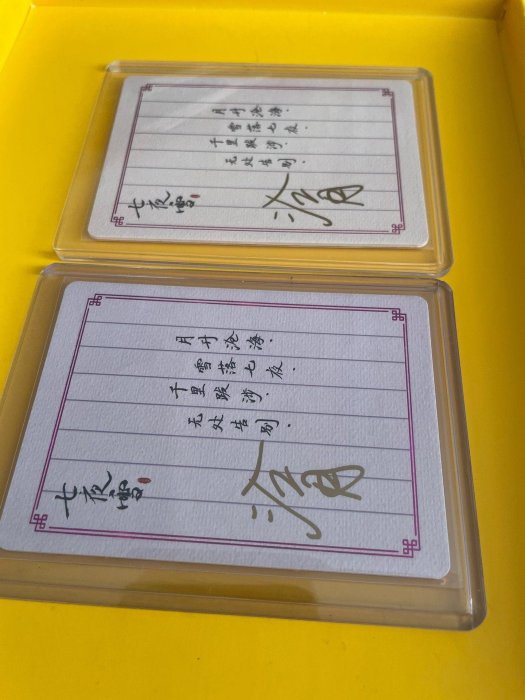 月升沧海.
雪落七夜.
千里跋涉.
无处告别.
七夜雪
沧月
月升沧海.
雪落七夜.
千里跋涉.
无处告别.
七夜雪
沧月